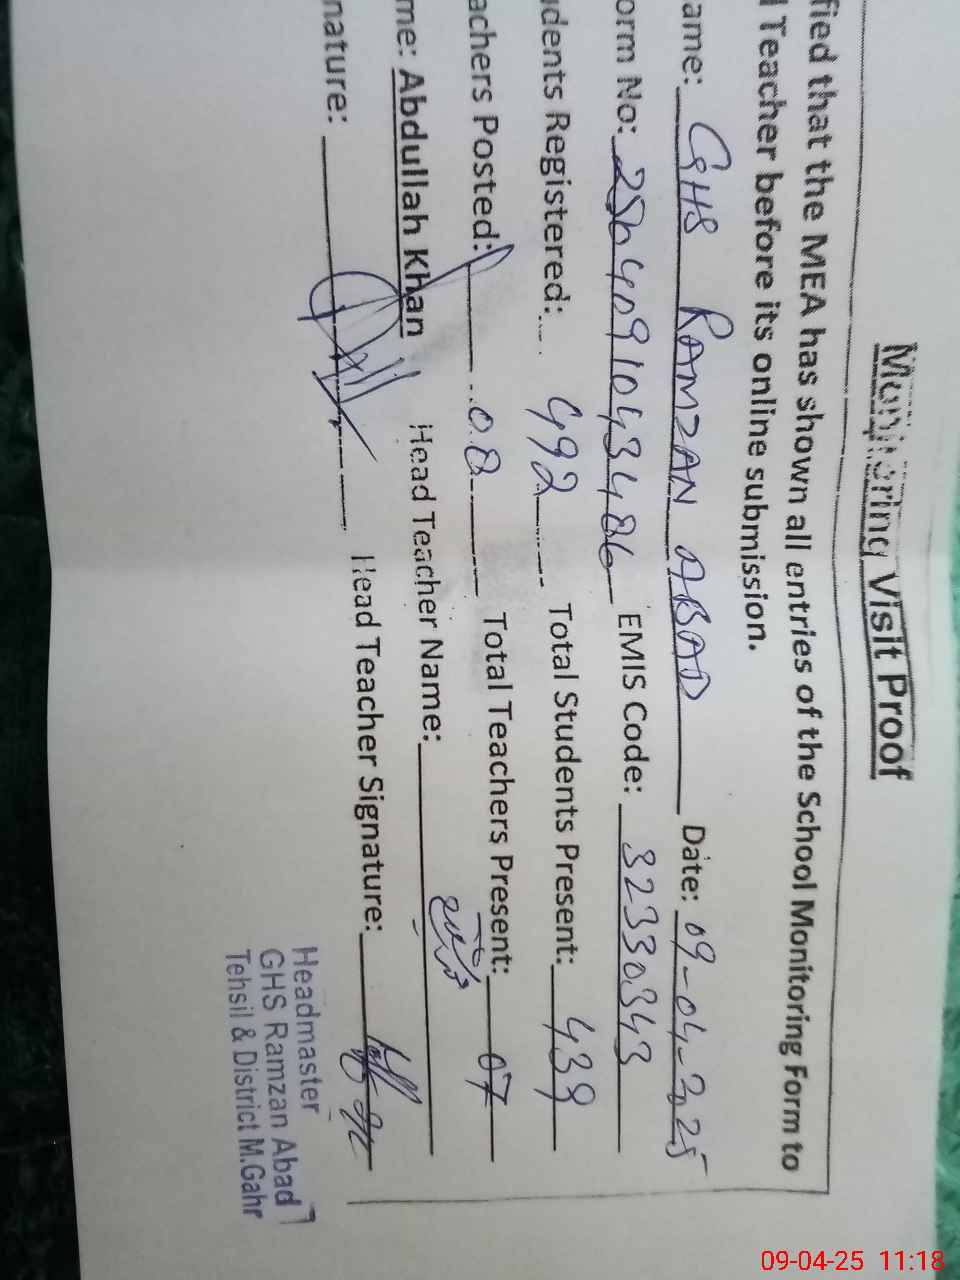 Monitoring Visit Proof
fied that the MEA has shown all entries of the School Monitoring Form to
Teacher before its online submission.
ame: GHS RAMZAN ABAD Date: 09-04-2025
orm No: 2504091043486 EMIS Code: 32330343
dents Registered: 492 Total Students Present: 439
achers Posted: 08 Total Teachers Present: 07
me: Abdullah Khan Head Teacher Name:
nature: Head Teacher Signature:
Headmaster
GHS Ramzan Abad
Tehsil & District M.Gahr
09-04-25 11:18